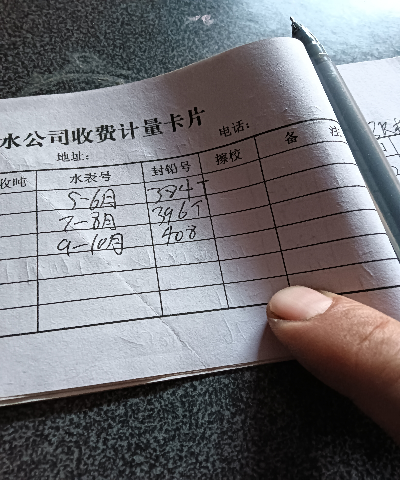 水公司收费计量卡片
地址: 电话:
收吨 水表号 封铅号 擦校 备 注
5-6月
7-8月 396个
9-10月 408